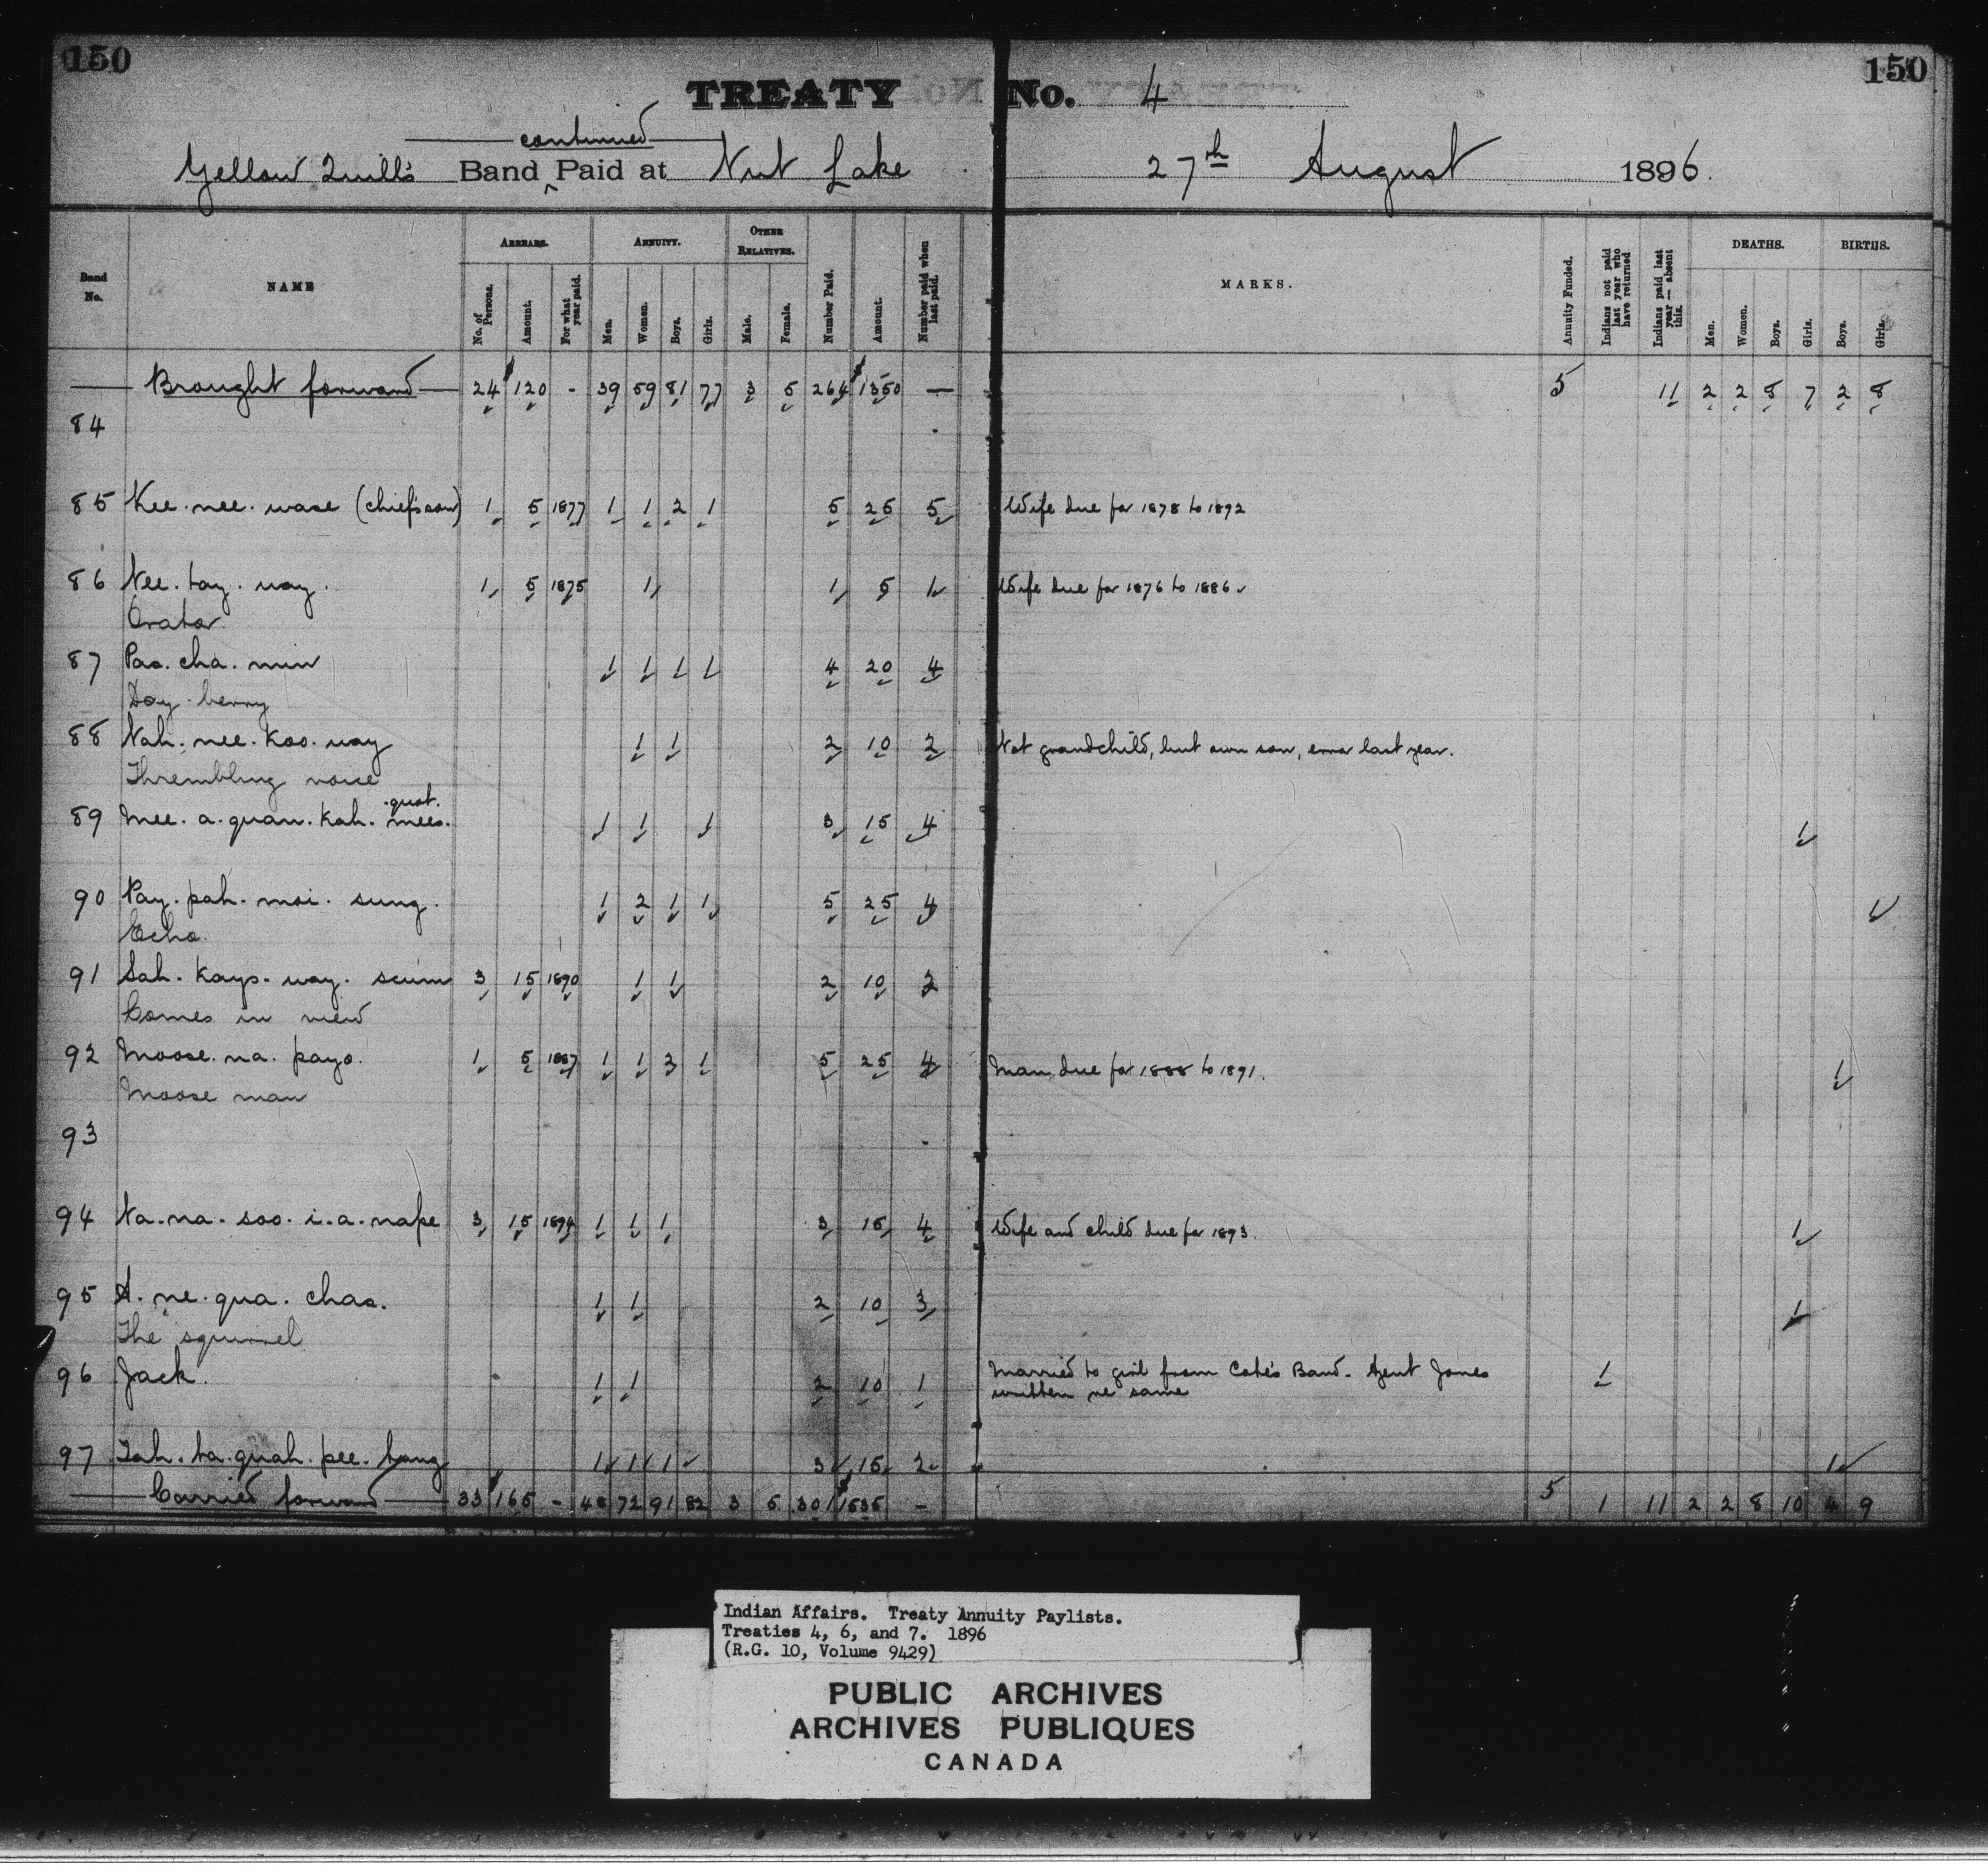 150 150
TREATY No. 4
continued
Yellow Quill's Band ^ Paid at Nut Lake 27th August 1896.
Band No. NAME ARREARS. No. of Persons. Amount. For what year paid. ANNUITY. Men. Women. Boys. Girls. OTHER RELATIVES. Male. Female. Number Paid. Amount. Number paid when last paid. MARKS. Annuity Funded. Indians not paid last year who have returned Indians paid last year — absent this. DEATHS. Men. Women. Boys. Girls. BIRTHS. Boys. Girls.
Brought forward 24 $120 - 39 59 81 77 3 5 264 $1350 — 5 11 2 2 8 7 2 8
84
85 Kee. nee. wase (chief's son) 1 5 1877 1 1 2 1 5 25 5 Wife due for 1878 to 1892
86 Nee. tay. way. 1 5 1875 1 1 5 1 Wife due for 1876 to 1886
Orator
87 Pas. cha. min 1 1 1 1 4 20 4
Day. berry
88 Nah. nee. Koo. way 1 1 2 10 2 Not grandchild, but own son, error last year.
Thrembling voice
quot.
89 Mee. a. quan. Kah. mees. 1 1 1 3 15 4 1
90 Pay. pah. moi. sung. 1 2 1 1 5 25 4 1
Echo.
91 Sah. Kays. way. scum 3 15 1890 1 1 2 10 2
Comes in view
92 Moose. na. payo. 1 5 1887 1 1 2 1 5 25 4 Man due for 1888 to 1891. 1
Moose man
93
94 Na. na. soo. i. a. nape 3 15 1894 1 1 1 3 15 4 Wife and child due for 1893. 1
95 A. ne. qua. chas. 1 1 2 10 3 1
The squirrel
96 Jack. 1 1 2 10 1 Married to girl from Cote's Band. Agent Jones 1
written re same
97 Tah. ta. quah. pee. tang 1 1 1 3 15 2 1
Carried forward 33 $165 - 48 72 91 82 3 5 301 $1535 - 5 1 11 2 2 8 10 4 9
Indian Affairs. Treaty Annuity Paylists.
Treaties 4, 6, and 7. 1896
(R.G. 10, Volume 9429)
PUBLIC ARCHIVES
ARCHIVES PUBLIQUES
CANADA